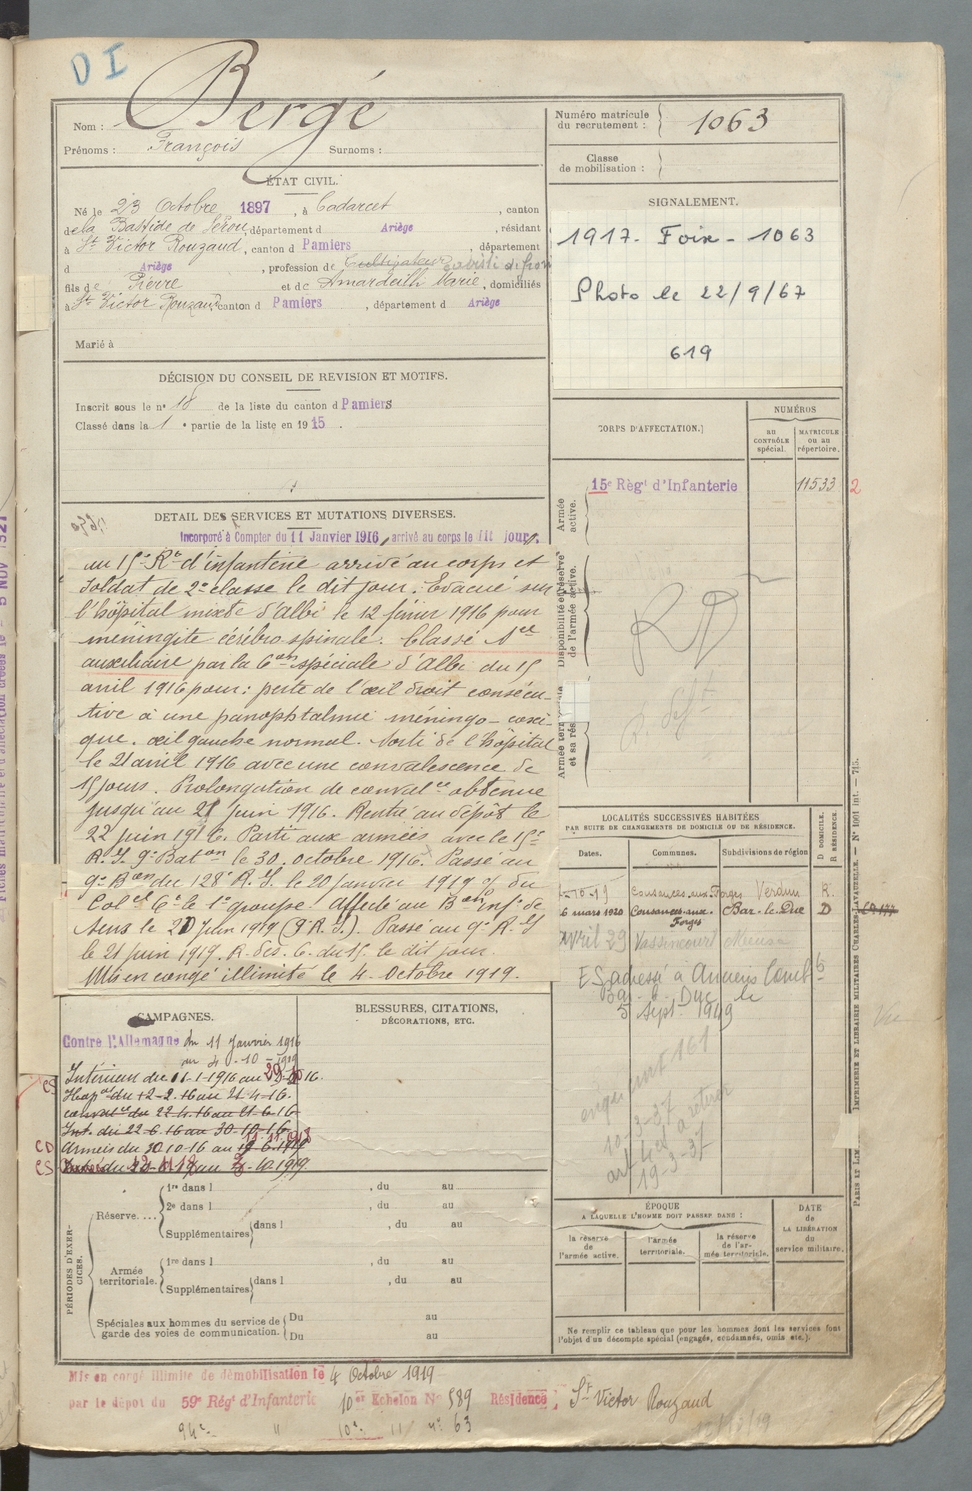 D I
Bergé
Nom :
Prénoms : François Surnoms :
Numéro matricule du recrutement : 1063
Classe de mobilisation :
ÉTAT CIVIL.
Né le 23 Octobre 1897, à Cadarcet, canton
de la Bastide de Sérou, département d Ariège, résidant
à St Victor Rouzaud, canton d Pamiers, département
d Ariège, profession de Cultivateur
fils de Pierre et de Amardeilh Marie, domiciliés
à St Victor Rouzaud canton d Pamiers, département d Ariège
Marié à
SIGNALEMENT.
1917. Foix - 1063
Photo le 22/9/67
619
DÉCISION DU CONSEIL DE REVISION ET MOTIFS.
Inscrit sous le n° 18 de la liste du canton d Pamiers
Classé dans la 1 e partie de la liste en 1915.
CORPS D'AFFECTATION.
NUMÉROS
AU CONTRÔLE spécial.
MATRICULE ou au répertoire.
Armée active.
15e Régt d'Infanterie 11533 2
Disponibilité et réserve de l'armée active.
RD
DETAIL DES SERVICES ET MUTATIONS DIVERSES.
Incorporé à Compter du 11 Janvier 1916, arrivé au corps le dit jour,
au 15e Rt d'infanterie arrivé au corps et
soldat de 2e classe le dit jour. Evacué sur
l'hôpital mixte d'Albi le 12 février 1916 pour
méningite cérébro spinale. Classé Sce
auxiliaire par la Con spéciale d'Albi du 15
avril 1916 pour : perte de l'œil droit consécu-
tive à une panophtalmie méningo-cocci-
que. œil gauche normal. Sorti de l'hôpital
le 21 avril 1916 avec une convalescence de
15 jours. Prolongation de convalce obtenue
jusqu'au 21 juin 1916. Rentré au dépôt le
22 juin 1916. Parti aux armées avec le 15e
R.I. 9e Baton le 30 octobre 1916. Passé au
9e Bon du 128e R.I. le 20 janvier 1919 of du
Colel Ct le 1er groupe. Affecté au Bon inf. de
Sens le 20 Juin 1919 (9e R.I.). Passé au 9e R.I
le 21 juin 1919. R. des. C. du 15. le dit jour.
Mis en congé illimité le 4 Octobre 1919.
LOCALITÉS SUCCESSIVES HABITÉES
PAR SUITE DE CHANGEMENTS DE DOMICILE OU DE RÉSIDENCE.
D DOMICILE. R RÉSIDENCE.
Dates. Communes. Subdivisions de région
-10-19 Cousances-aux-Forges Verdun R.
6 mars 1920 Cousances-aux-Forges Bar-le-Duc D
Avril 29 Vassincourt Meuse
ES adressé à Anciens Combts
Bar-le-Duc le
5 Sept 1949
10-3-37
à retirer
19-3-37
CAMPAGNES.
BLESSURES, CITATIONS, DÉCORATIONS, ETC.
Contre l'Allemagne du 11 Janvier 1916
au 4-10-1919
CS Intérieur du 11-1-1916 au
Hopal du 12-2-16 au 21-4-16.
convalce du 22-4-16 au 21-6-16
Int. du 22-6-16 au 30-10-16
CD Armées du 30-10-16 au
CS
PÉRIODES D'EXERCICES.
Réserve....
1re dans l , du au
2e dans l , du au
Supplémentaires dans l , du au
Armée territoriale.
1re dans l , du au
Supplémentaires dans l , du au
Spéciales aux hommes du service de garde des voies de communication.
Du au
Du au
ÉPOQUE
A LAQUELLE L'HOMME DOIT PASSER DANS :
la réserve de l'armée active.
l'armée territoriale.
la réserve de l'armée territoriale.
DATE de LA LIBÉRATION du service militaire.
Ne remplir ce tableau que pour les hommes dont les services font
l'objet d'un décompte spécial (engagés, condamnés, omis etc.).
IMPRIMERIE ET LIBRAIRIE MILITAIRES CHARLES-LAVAUZELLE. — N° 1001 int. — 715.
Mis en congé illimité de démobilisation le 4 Octobre 1919
par le dépôt du 59e Régt d'Infanterie 10er Echelon N° 589 Résidence : St Victor Rouzaud